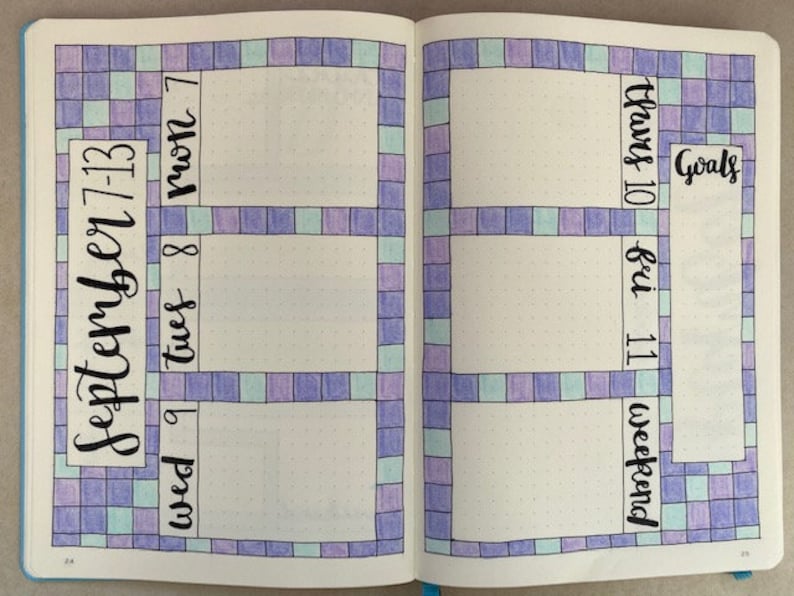 September 7-13
mon 7
tues 8
wed 9
24
thurs 10
fri 11
weekend
Goals
25